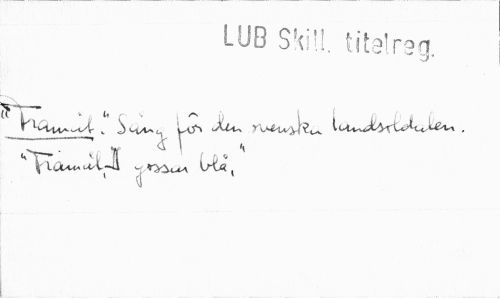 LUB Skill. titelreg.
"Framåt." Sång för den svenska landsoldaten.
"Framåt, I gossar blå,"